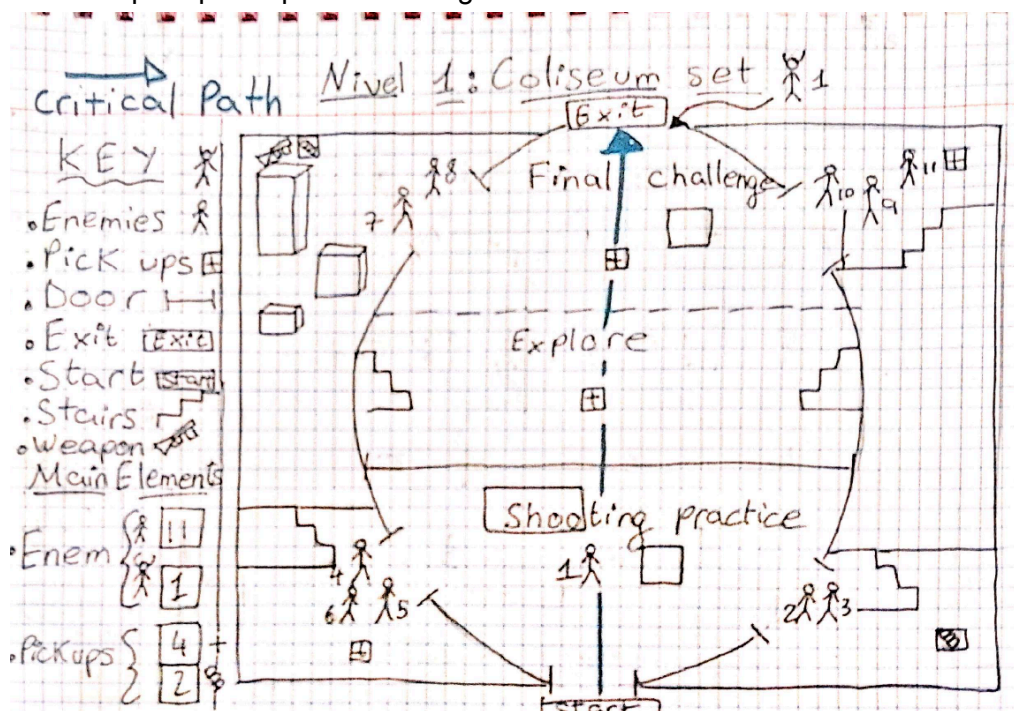 Critical Path
Nivel 1: Coliseum set
1
Exit
KEY
Enemies
Pick ups
Door
Exit Exit
Start Start
Stairs
Weapon
Main Elements
Enem 11
1
Pickups 4
2
8
7
Final challenge
10
9
11
Explore
Shooting practice
1
4
6
5
2
3
Start